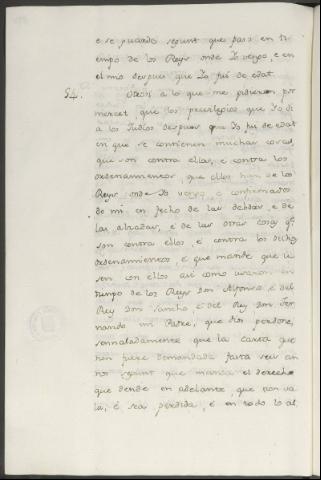 e se guarde segunt que paso en ti
empo de los Reys onde Yo vengo, e en
el mio despues que Yo fui de edat
54. Otrosi a lo que me pidieron por
merced, que los previlegios que Yo di
a los Judios despues que Yo fui de edat
en que se contienen muchas cosas,
que son contra ellos, e contra los
ordenamientos, que ellos han de los
Reys onde Yo vengo e confirmados
de mi en fecho de las debdas, e de
las alzadas, e de las otras cosas q
son contra ellos, e contra los dichos
ordenamientos e que mande que u
sen con ellos asi como usaron en
tiempo de los Reys Don Alfonso, e del
Rey Don Sancho, e del Rey Don Fer
nando mi Padre, que Dios perdone,
sennaladamente que la carta que
non fuere demandada fasta seis an
nos segunt que manda el derecho
que dende en adelante, que non va
la, e sea perdida, e en todo lo al,